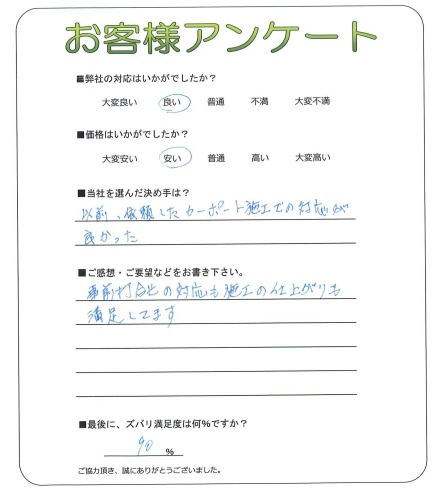 お客様アンケート
■弊社の対応はいかがでしたか？
大変良い 良い 普通 不満 大変不満
■価格はいかがでしたか？
大変安い 安い 普通 高い 大変高い
■当社を選んだ決め手は？
以前、依頼したカーポート施工での対応が
良かった
■ご感想・ご要望などをお書き下さい。
事前打合せの対応も施工の仕上がりも
満足してます
■最後に、ズバリ満足度は何％ですか？
90 ％
ご協力頂き、誠にありがとうございました。